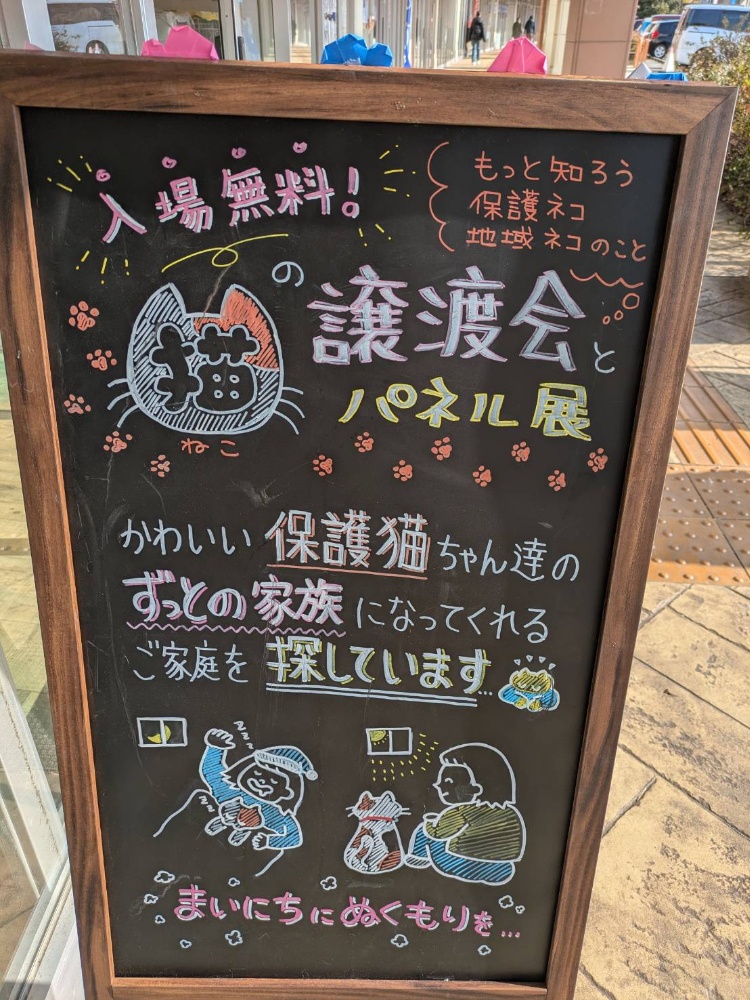 入場無料!
もっと知ろう
保護ネコ
地域ネコのこと
猫の譲渡会と
ねこ
パネル展
かわいい保護猫ちゃん達の
ずっとの家族になってくれる
ご家庭を探しています…
zzz
zzz
まいにちにぬくもりを…